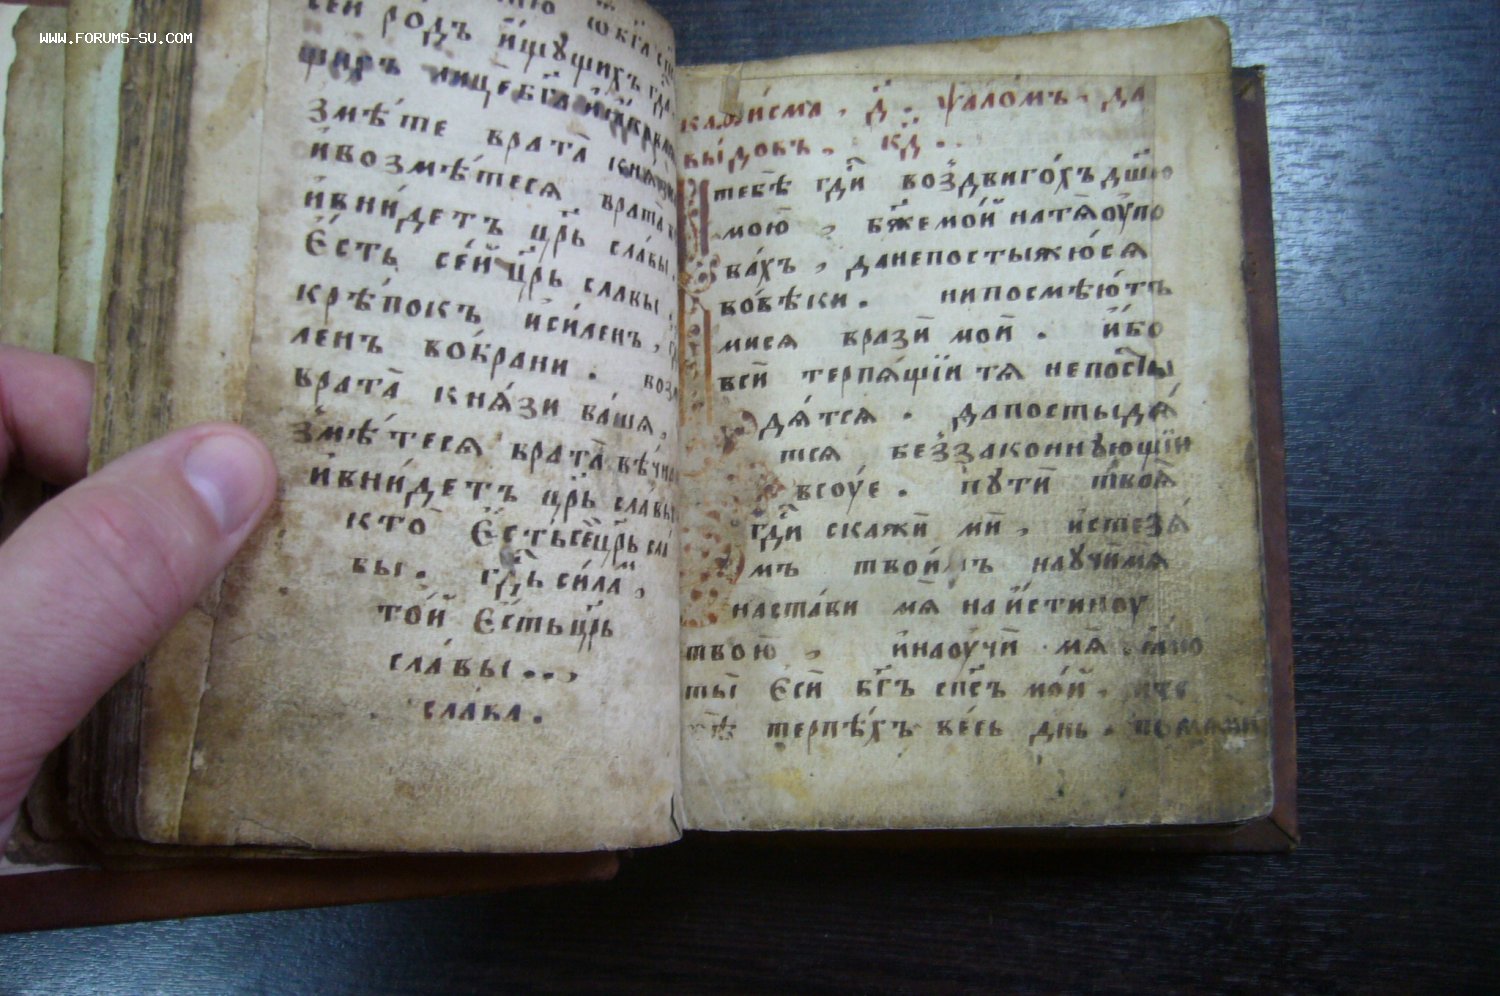 WWW.FORUMS-SU.COM
сей родъ и҆щꙋщихъ гд҃а
ищ
змѣ́те врата̀
и҆возмѣ́тесѧ врата̀
и҆вни́детъ цр҃ь сла́вы.
Є҆сть се́й цр҃ь славы,
крѣ́покъ и҆си́ленъ,
ленъ во́брани.
врата̀ кнѧ́зи ва́шѧ,
змѣ́тесѧ врата̀ вѣ́чна
и҆вни́детъ цр҃ь сла́вы
кто̀ Є҆сть се́й цр҃ь сла́
вы. гд҃ь си́ла̀,
то́й Є҆сть цр҃ь
сла́вы..,
сла́ва.
каѳи́сма, д҃. ѱало́мъ. да
вы́довъ, кд҃..
тебѣ̀ гд҃и воздвиго́хъ дш҃ю
мою̀, бж҃е мо́й на тѧ оу҆по
ва́хъ, да не постыжю́сѧ
во́вѣки. ни посмѣю́тъ
мисѧ вразѝ моѝ. и҆́бо
всѝ терпѧ́щїи тѧ не посты
дѧ́тсѧ. да постыдѧ́
тсѧ беззаконнꙋющїи
всоу́е. пꙋтѝ твоѧ̀
гд҃и скажѝ мѝ, и҆стезѧ́
мъ твои́мъ наꙋчѝмѧ
наста́ви мѧ̀ на и҆́стиноу
твою̀, и҆наоу́чѝ мѧ̀
ты̀ Є҆сѝ бг҃ъ сп҃съ мо́й.
терпѣ́хъ ве́сь дн҃ь. помѧни